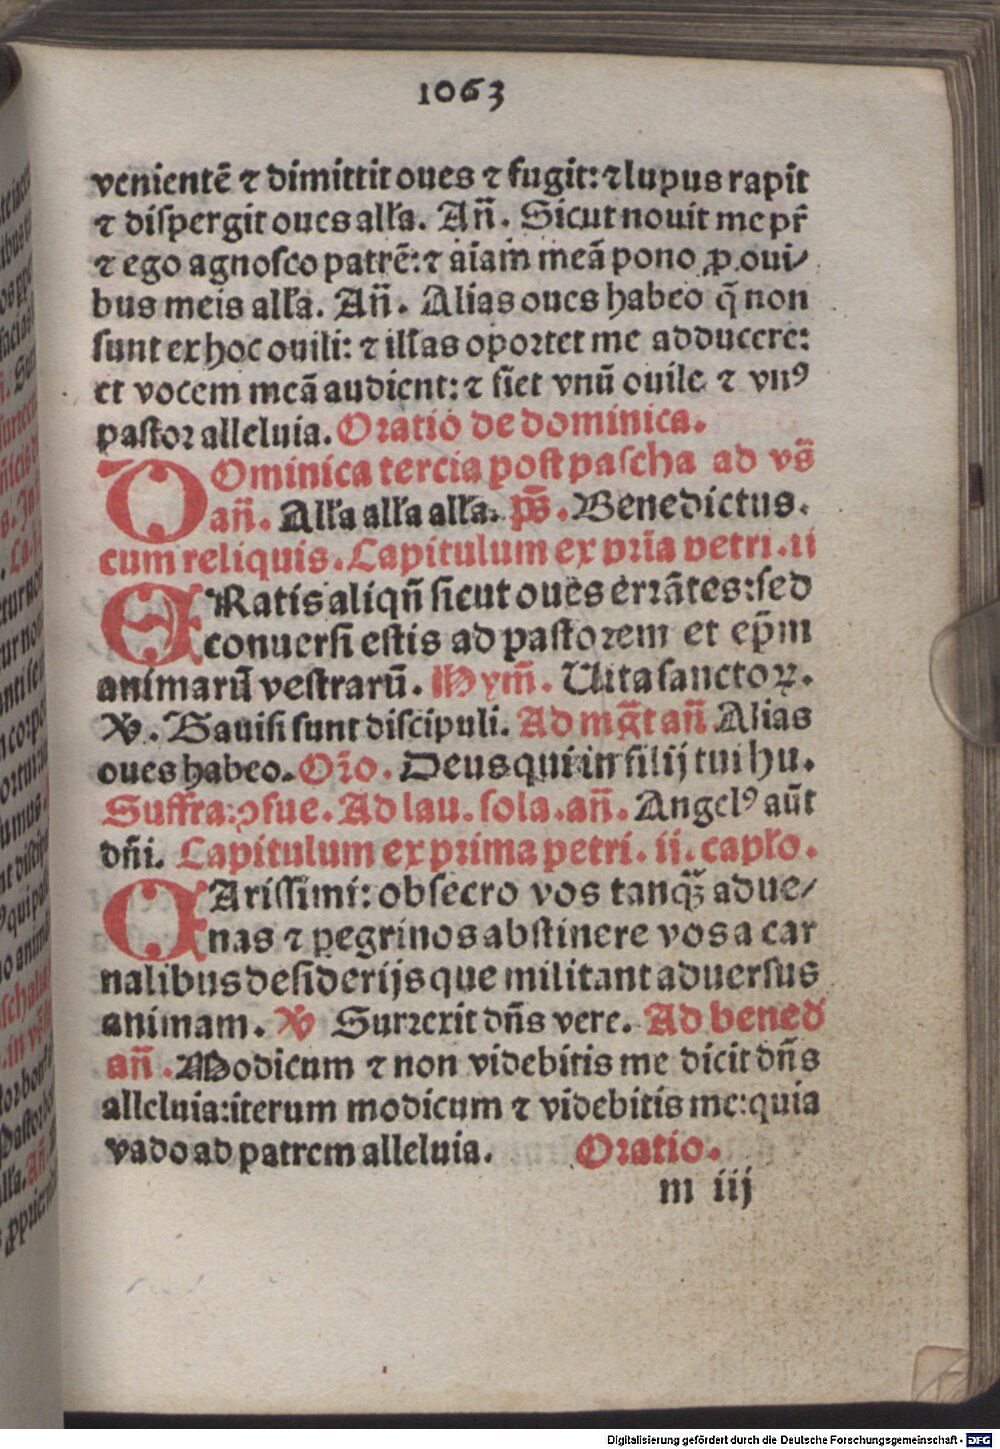 1063
venientē ⁊ dimittit oues ⁊ fugit: ⁊ lupus rapit
⁊ diſpergit oues alľa. Añ. Sicut nouit me pr̃
⁊ ego agnoſco patrē: ⁊ aīam meā pono ꝓ oui⸗
bus meis alľa. Añ. Alias oues habeo q̄ non
ſunt ex hoc ouili: ⁊ illas opoꝛtet me adducere:
et vocem meā audient: ⁊ fiet vnū ouile ⁊ vnꝰ
paſtoꝛ alleluia. Oꝛatio de dominica.
DOminica tercia poſt paſcha ad vs̄
añ. Alľa alľa alľa. ps̄. Benedictus.
cum reliquis. Capitulum ex pꝛīa petri. ii
ERatis aliqn̄ ſicut oues erꝛātes: ſed
conuerſi eſtis ad paſtoꝛem et ep̄m
animarū veſtrarū. Hym̄. Uita ſanctoꝝ.
℣. Gauiſi ſunt diſcipuli. Ad mg̃t añ Alias
oues habeo. Oꝛ̄o. Deus qui in filij tui hu.
Suffra: ꝯſue. Ad lau. ſola. añ. Angelꝰ aūt
dñi. Capitulum ex pꝛima petri. ii. capľo.
CAriſſimi: obſecro vos tanqꝫ̄ adue⸗
nas ⁊ ꝑegrinos abſtinere vos a car
nalibus deſiderijs que militant aduerſus
animam. ℣ Surꝛexit dñs vere. Ad bened̄
añ. Modicum ⁊ non videbitis me dicit dñs
alleluia: iterum modicum ⁊ videbitis me: quia
vado ad patrem alleluia. Oꝛatio.
m iij
Digitalisierung gefördert durch die Deutsche Forschungsgemeinschaft - DFG